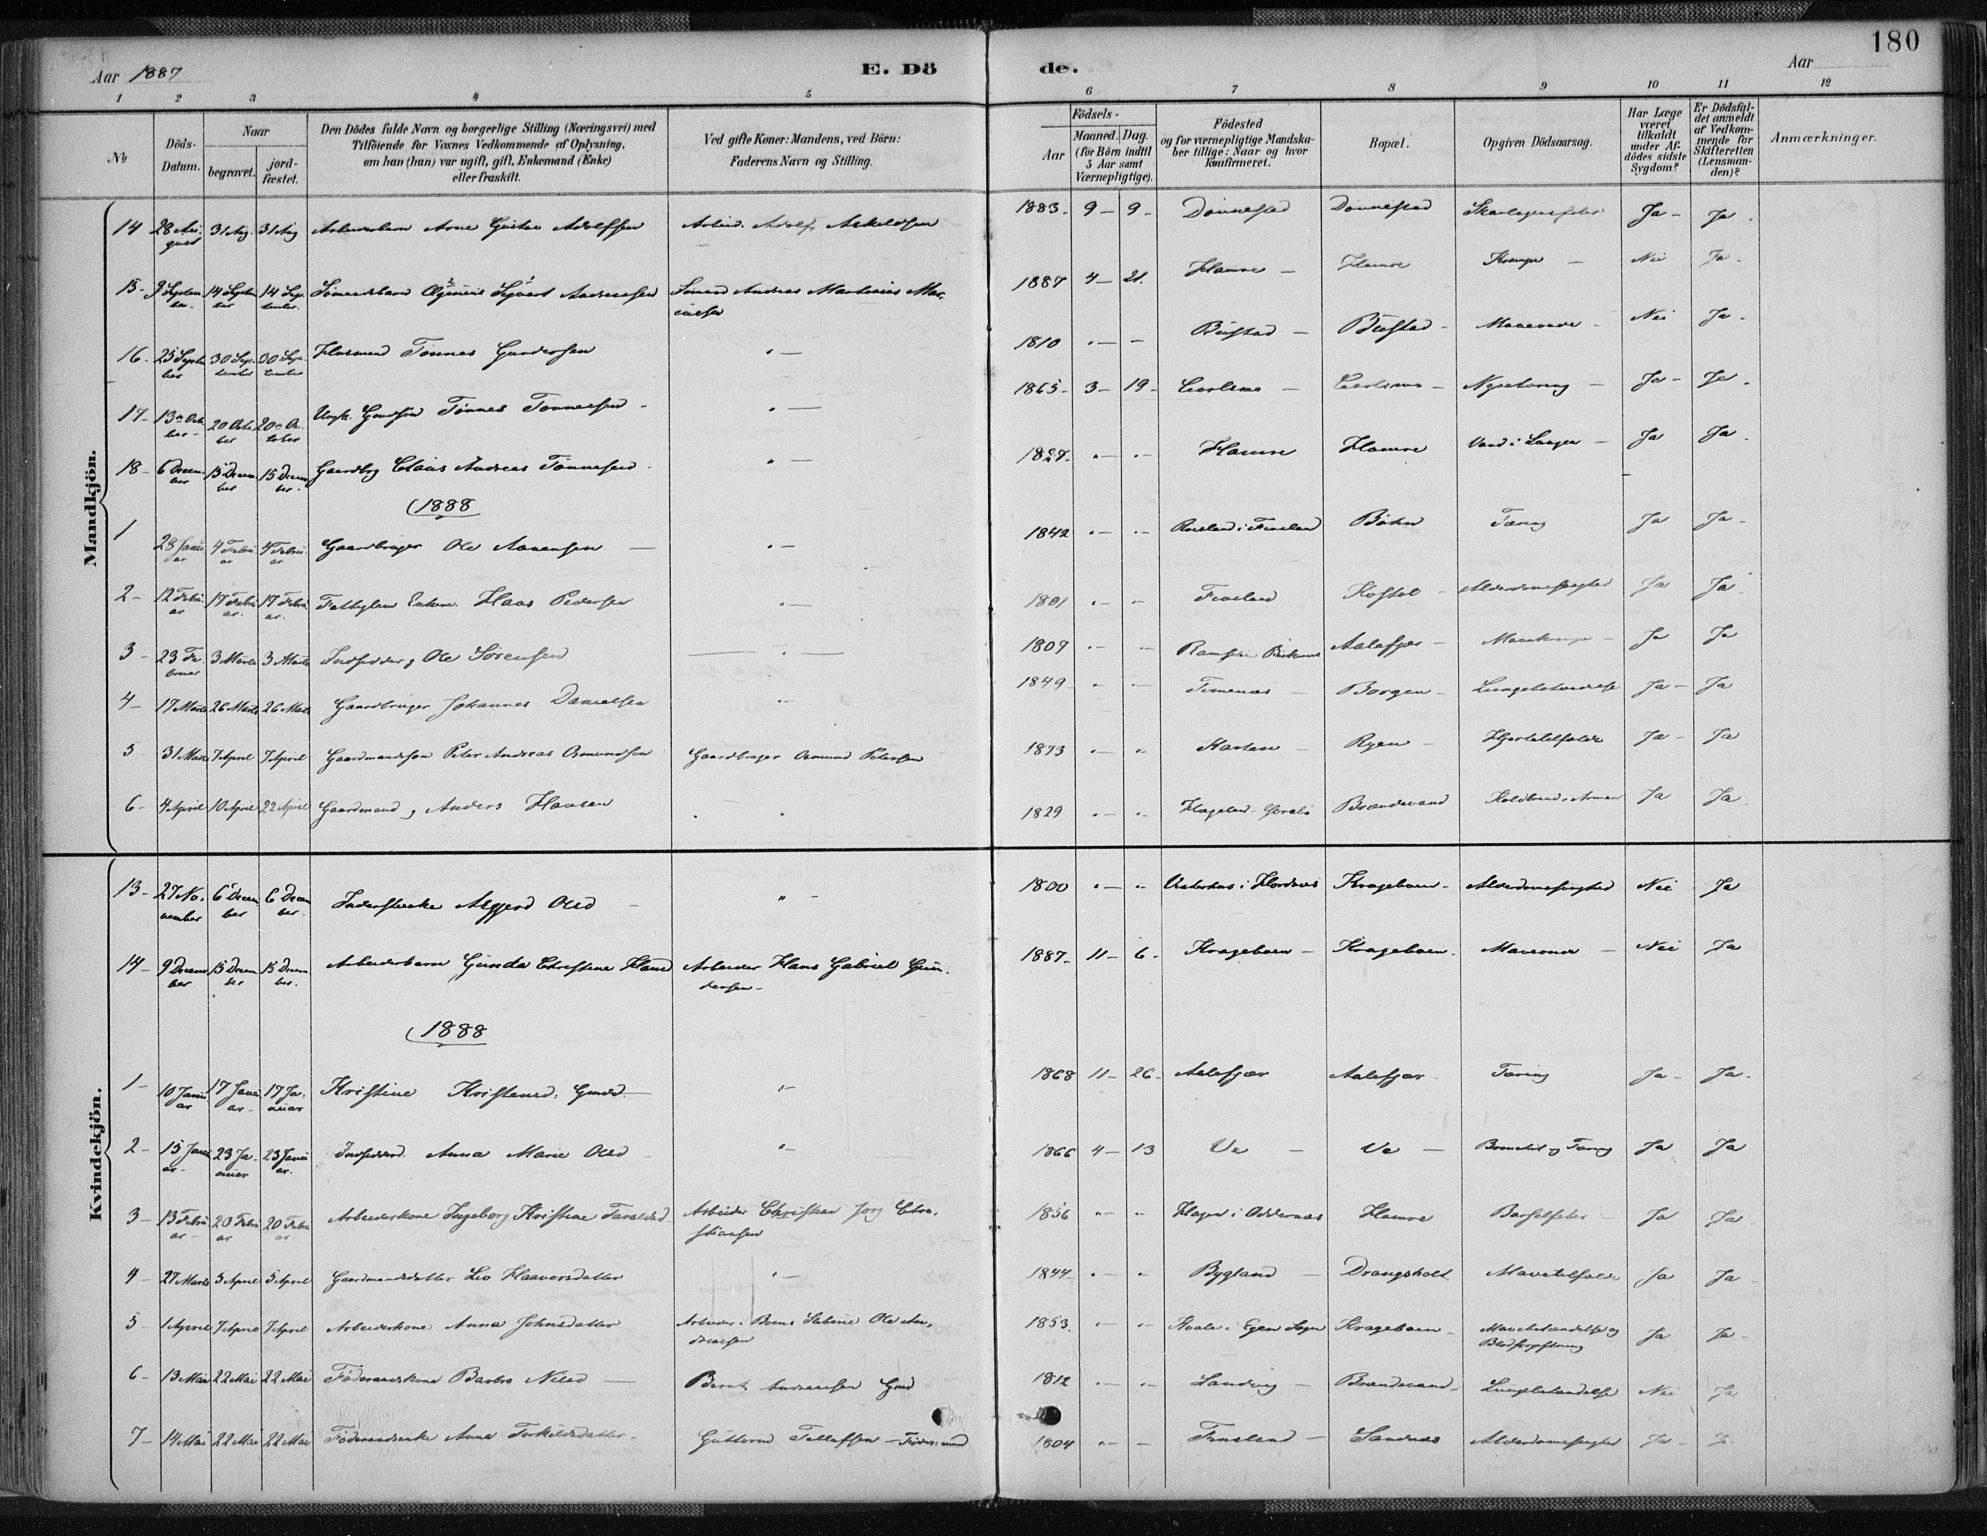 180
Aar 1887
E. Dö
de.
Aar
1 2 3 4 5 6 7 8 9 10 11 12
No
Döds-Datum.
Naar
begravet.
jord-fæstet.
Den Dödes fulde Navn og borgerlige Stilling (Næringsvei) med
Tilföiende for Voxnes Vedkommende af Oplysning,
om han (hun) var ugift, gift, Enkemand (Enke)
eller fraskilt.
Ved gifte Koner: Mandens, ved Börn:
Faderens Navn og Stilling.
Födsels-
Aar
Maaned. Dag.
(for Börn indtil
5 Aar samt
Værnepligtige).
Födested
og for værnepligtige Mandska-
ber tillige: Naar og hvor
konfirmeret.
Bopæl.
Opgiven Dödsaarsag.
Har Læge
været
tilkaldt
under Af-
dödes sidste
Sygdom?
Er Dödsfal-
det anmeldt
af Vedkom-
mende for
Skifteretten
(Lensman-
den)?
Anmærkninger.
Mandkjön.
14 28 August 31 Aug. 31 Aug Arbeiderbarn Arne Gustav Adolfsen Arbeid. Adolf Askildsen 1883 - 9 - 9 - Dønnestad Dønnestad Skarlagensfeber Ja - Ja.
15 - 9 September 14 September 14 September Sømandsbarn Sigvart Andreassen Sømand Andreas Martinius 1887 4 - 21. Hamre - Hamre Krampe - Nei Ja.
16 - 25 September 30 September 30 September Husmand Tønnes Gundersen " - 1810 Bustad - Bustad - Nei Ja.
17 - 13 October 20 October 20 October Ungk. Gaardsøn Tønnes Tønnessen - " - 1865 - 3 - 19 - Ja - Ja.
18 - 6 December 15 December 15 December Gaardbrg Claus Andreas Tønnesen - " - 1827 - Hamre Hamre Vand i Lungen - Ja Ja.
(1888
1 28 Januar 4 Februar 4 Februar Gaardbruger Ole Aanensen - " - 1842 i Finsland Bøhn Tæring Ja Ja -
2 - 12 Februar 17 Februar 17 Februar Fattiglem Enkem. Hans Pedersen " - 1801 Finsland Kostøl - Alderdomssvaghed Ja Ja
3 - 23 Februar 3 Marts 3 Marts Indsidder, Ole Sørensen - " - 1809 Aalefjær - Ja Ja
4 - 17 Marts 26 Marts 26 Marts Gaardbruger Johannes Danielsen " - 1849 Timenæs - Borgen - Lungebetændelse Ja - Ja
5 31 Marts 7 April 7 April Gaardmandssøn Peter Andreas Osmundsen Gaardbruger Osmund Petersen 1873 - Ryen - Hjertetilfælde Ja - Ja
6 - 4 April 10 April 22 April Gaardmand, Anders Hansen 1829 Brændevand Koldbrand i Armen Ja Ja.
Kvindekjön.
13 - 27 November 6 December 6 December Inderstenke Asgjerd Olsd - " - 1800 Krageboen - Alderdomssvaghed Nei Ja
14 - 9 December 15 December 15 December Arbeiderbarn Gunda Christine Hansd Arbeider Hans Gabriel Gundersen - 1887 - 11 - 6 - Krageboen - Krageboen. - Nei Ja
(1888
1 - 10 Januar 17 Januar 17 Januar Kristine Kristensd. Gmdd. - " - 1868 11 - 26 - Aalefjær Aalefjær - Tæring Ja - Ja.
2 - 15 Januar 23 Januar 23 Januar Indsidderd. Anna Marie Olsd - " - 1866 4 - 13 Ve - Ve - og Tæring Ja Ja
3 - 13 Februar 20 Februar 20 Februar Arbeiderkone Ingeborg Kristine Taraldsd. Arbeider Christian Jørg Christiansen 1856 Hagen i Oddernæs Hamre Barselfeber - Ja Ja -
4 - 27 Marts 5 April 5 April Gaardmandsdatter Liv Haaversdatter " - 1844 Bygland - Drangsholt Mavetilfælde Ja Ja -
5 1 April 7 April 7 April Arbeiderkone Anna Johnsdatter Arbeider Ole Andreassen 1853. Krageboen - Mavebetændelse og Blodforgiftning Ja Ja -
6 - 13 Mai 22 Mai 22 Mai Føderaadskone Barbro Nilsd - Bernt Andreassen Gmd 1812 - Brændevand - Lungebetændelse Nei Ja
7 - 14 Mai 22 Mai 22 Mai Føderaadsenke Anne Torkildsdatter - Guttorm Tellefsen - Fødermd 1804 Finsland - Sandnæs Alderdomssvaghed Ja -